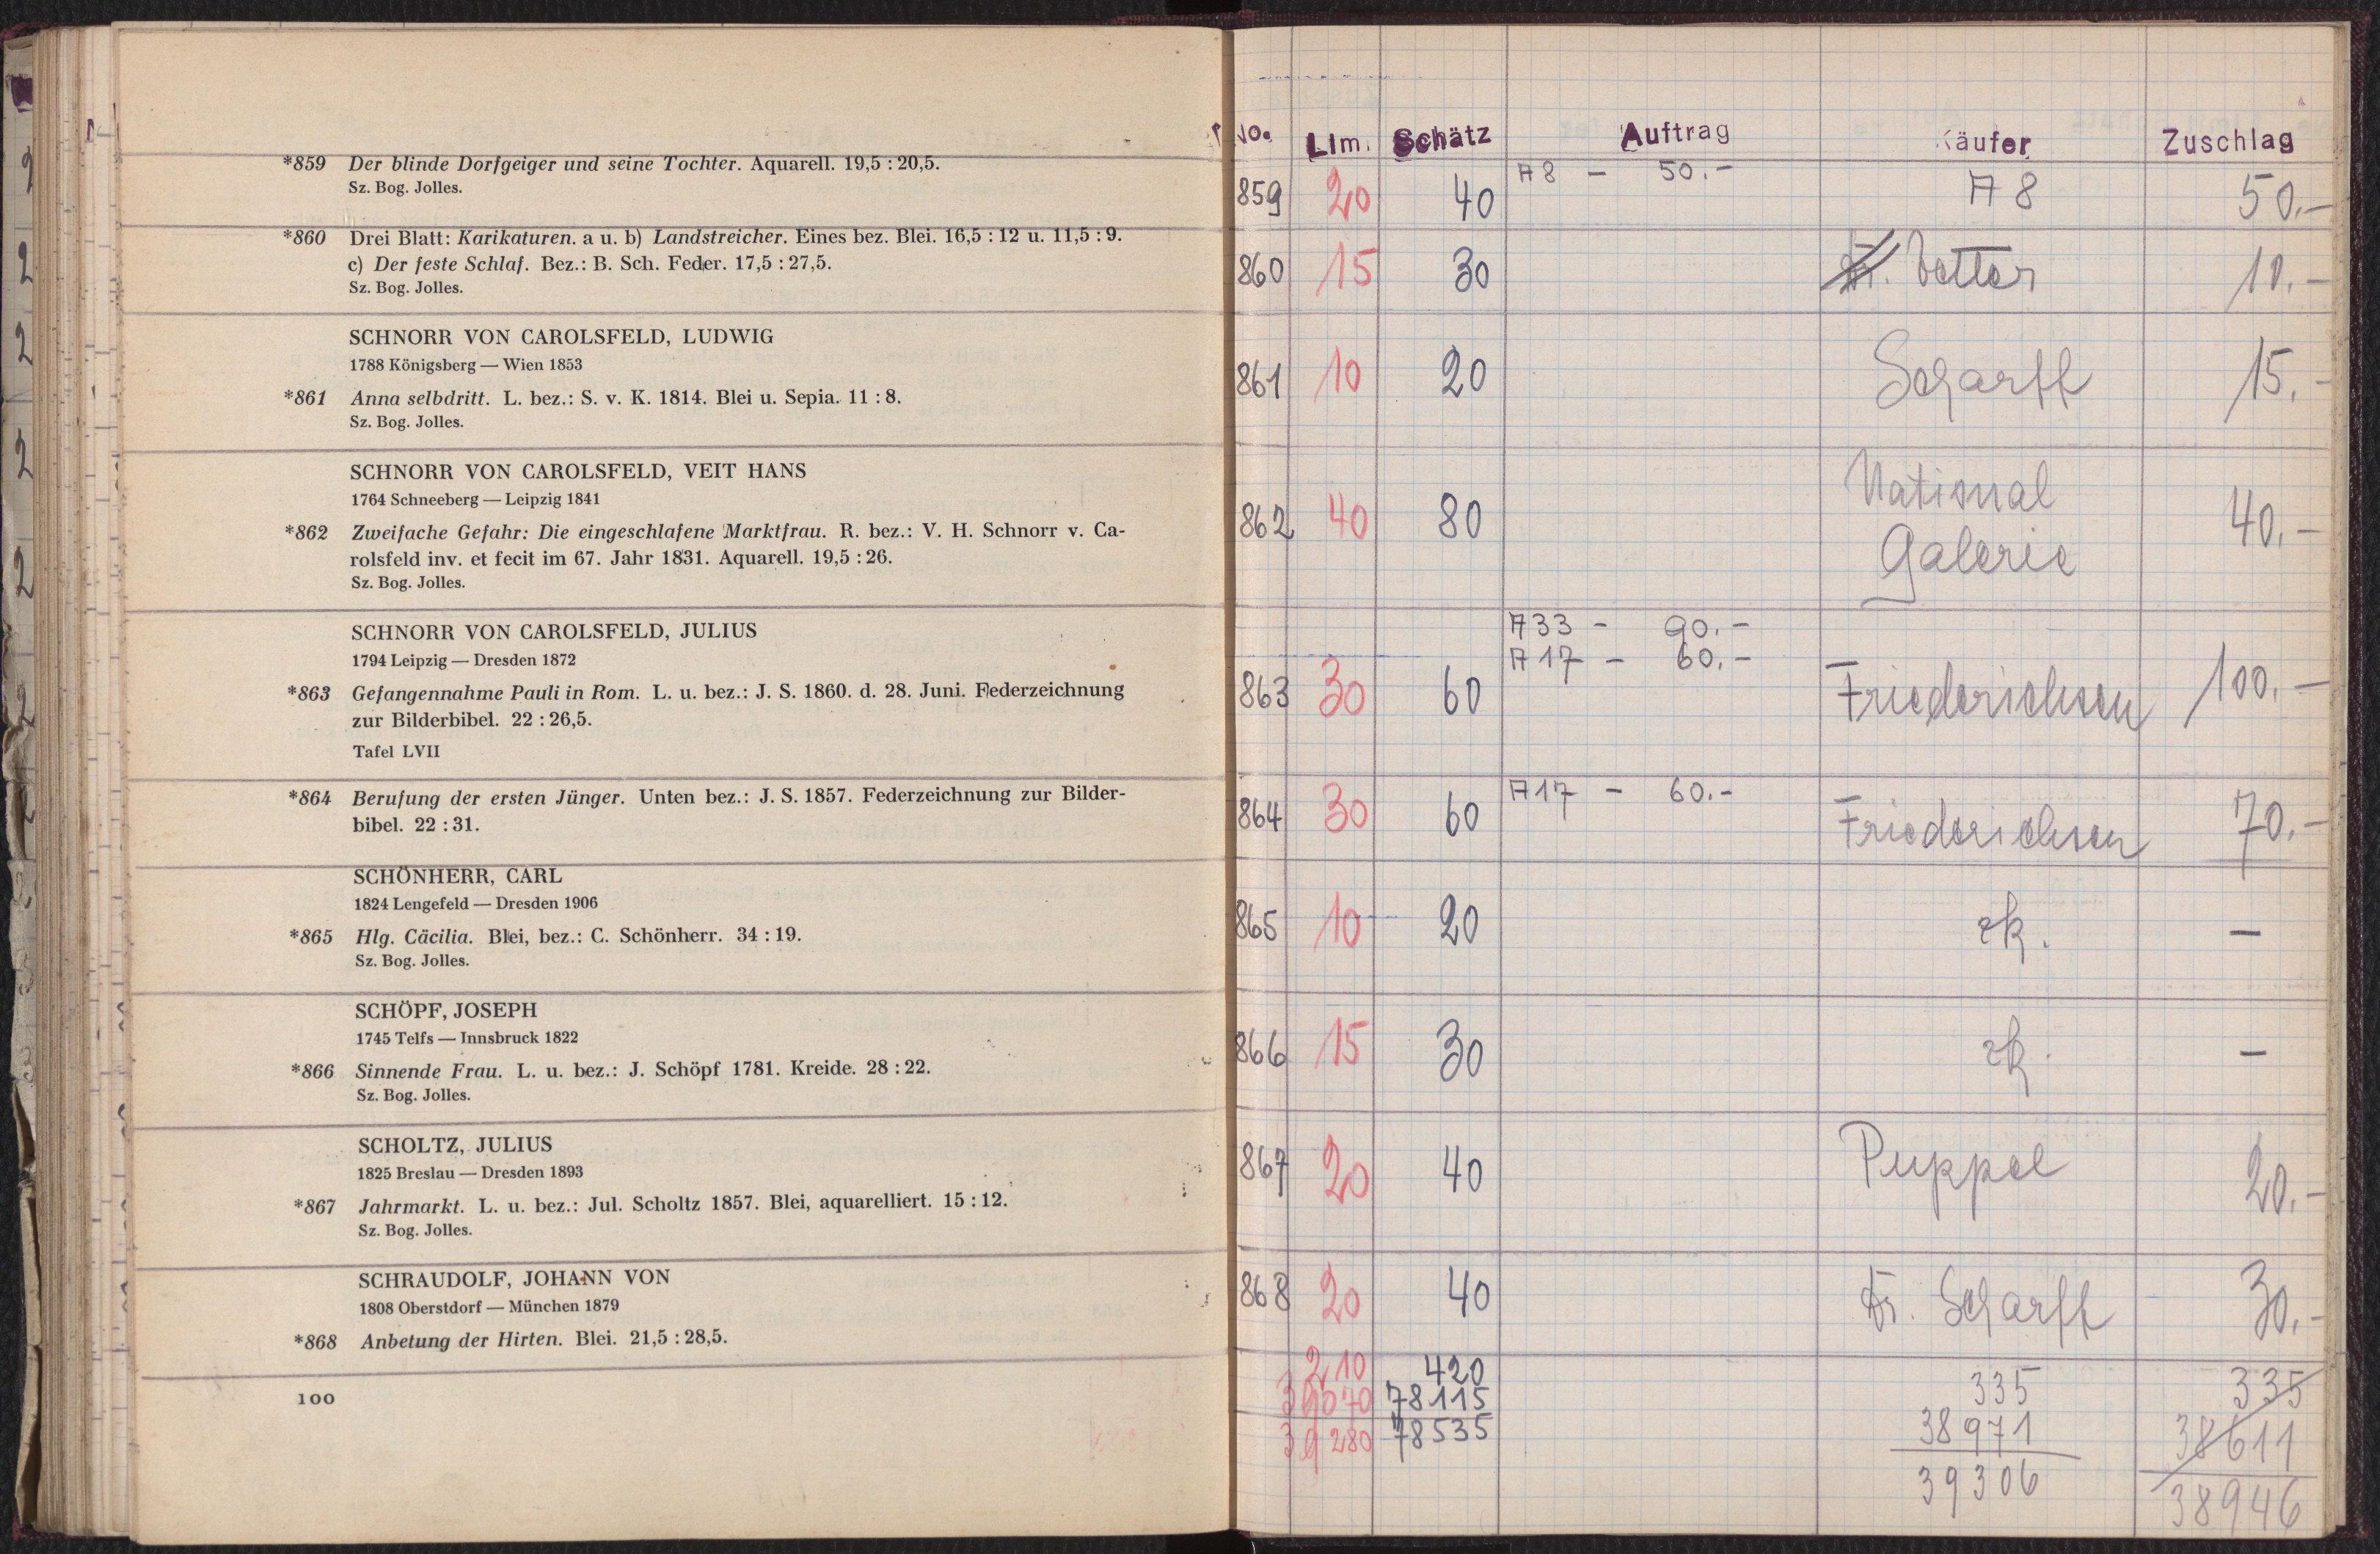 *859 Der blinde Dorfgeiger und seine Tochter. Aquarell. 19,5 : 20,5.
Sz. Bog. Jolles.
*860 Drei Blatt: Karikaturen. a u. b) Landstreicher. Eines bez. Blei. 16,5 : 12 u. 11,5 : 9.
c) Der feste Schlaf. Bez.: B. Sch. Feder. 17,5 : 27,5.
Sz. Bog. Jolles.
SCHNORR VON CAROLSFELD, LUDWIG
1788 Königsberg — Wien 1853
*861 Anna selbdritt. L. bez.: S. v. K. 1814. Blei u. Sepia. 11 : 8.
Sz. Bog. Jolles.
SCHNORR VON CAROLSFELD, VEIT HANS
1764 Schneeberg — Leipzig 1841
*862 Zweifache Gefahr: Die eingeschlafene Marktfrau. R. bez.: V. H. Schnorr v. Ca-
rolsfeld inv. et fecit im 67. Jahr 1831. Aquarell. 19,5 : 26.
Sz. Bog. Jolles.
SCHNORR VON CAROLSFELD, JULIUS
1794 Leipzig — Dresden 1872
*863 Gefangennahme Pauli in Rom. L. u. bez.: J. S. 1860. d. 28. Juni. Federzeichnung
zur Bilderbibel. 22 : 26,5.
Tafel LVII
*864 Berufung der ersten Jünger. Unten bez.: J. S. 1857. Federzeichnung zur Bilder-
bibel. 22 : 31.
SCHÖNHERR, CARL
1824 Lengefeld — Dresden 1906
*865 Hlg. Cäcilia. Blei, bez.: C. Schönherr. 34 : 19.
Sz. Bog. Jolles.
SCHÖPF, JOSEPH
1745 Telfs — Innsbruck 1822
*866 Sinnende Frau. L. u. bez.: J. Schöpf 1781. Kreide. 28 : 22.
Sz. Bog. Jolles.
SCHOLTZ, JULIUS
1825 Breslau — Dresden 1893
*867 Jahrmarkt. L. u. bez.: Jul. Scholtz 1857. Blei, aquarelliert. 15 : 12.
Sz. Bog. Jolles.
SCHRAUDOLF, JOHANN VON
1808 Oberstdorf — München 1879
*868 Anbetung der Hirten. Blei. 21,5 : 28,5.
100
No. Lim. Schätz Auftrag Käufer Zuschlag
A 8 – 50.–
859 20 40 A 8 50.–
860 15 30 Dr. Vetter 10.–
861 10 20 Scharff 15.–
862 40 80 National 40.–
Galerie
A 33 – 90.–
A 17 – 60.–
863 30 60 Friederichsen 100.–
A 17 – 60.–
864 30 60 Friederichsen 70.–
865 10 20 zk. –
866 15 30 zk. –
867 20 40 Puppel 20.–
868 20 40 Dr. Scharff 30.–
210 420 335 335
39070 78115 38971 38611
39280 78535 39306 38946